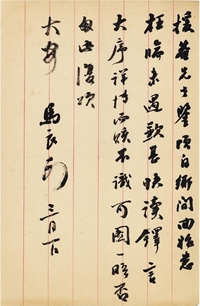 援菴先生鑒頃自鄉間回始悉
枉臨未遇歉甚快讀鐸言
大序詳博不識可圖一晤否
匆此復頌
大安 馬良 三月